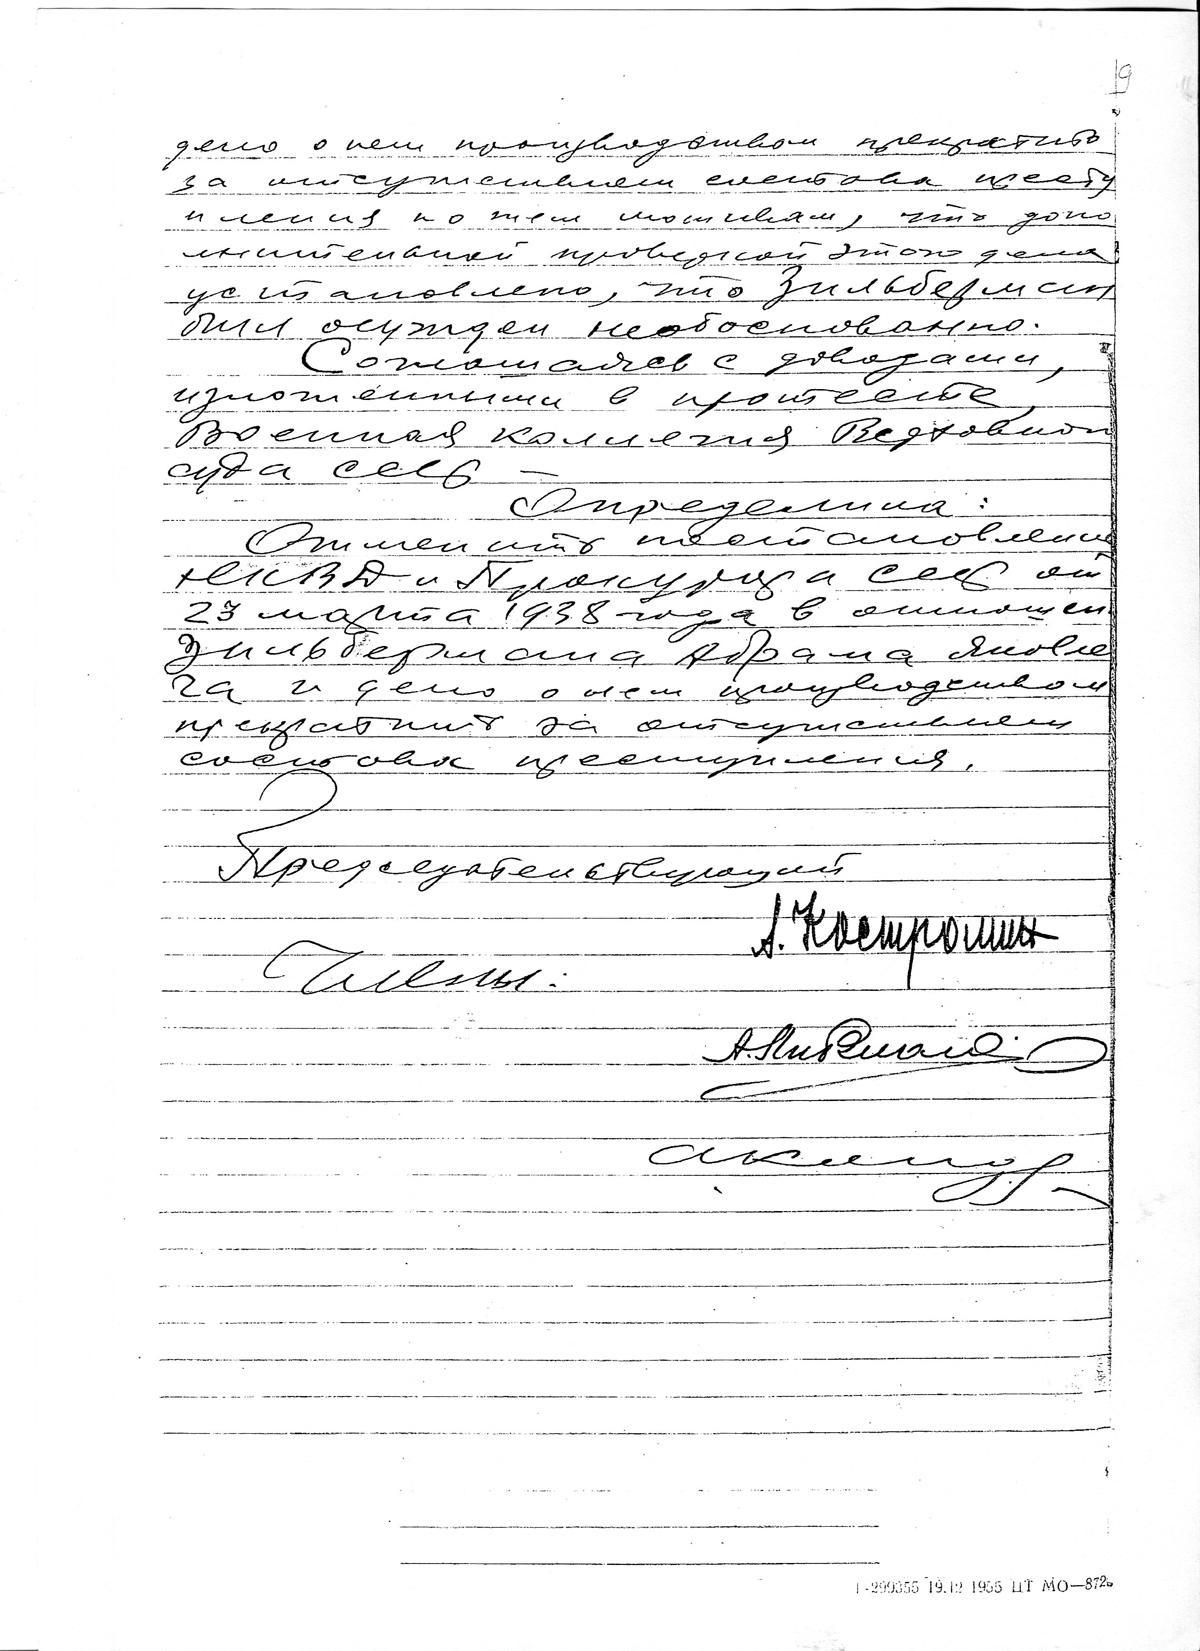 9
дело о нем производством прекратить
за отсутствием состава престу
пления по тем мотивам, что допо
лнительной проверкой этого дела
установлено, что Зильберман
был осужден необоснованно.
Соглашаясь с доводами,
изложенными в протесте,
Военная коллегия Верховного
суда СССР —
Определила:
Отменить постановление
НКВД и Прокурора СССР от
23 марта 1938 года в отношен
Зильбермана Абрама Яковле
ча и дело о нем производством
прекратить за отсутствием
состава преступления.
Председательствующий
А. Костромин
Члены:
1-299355 19.12 1955 ЦТ МО—872